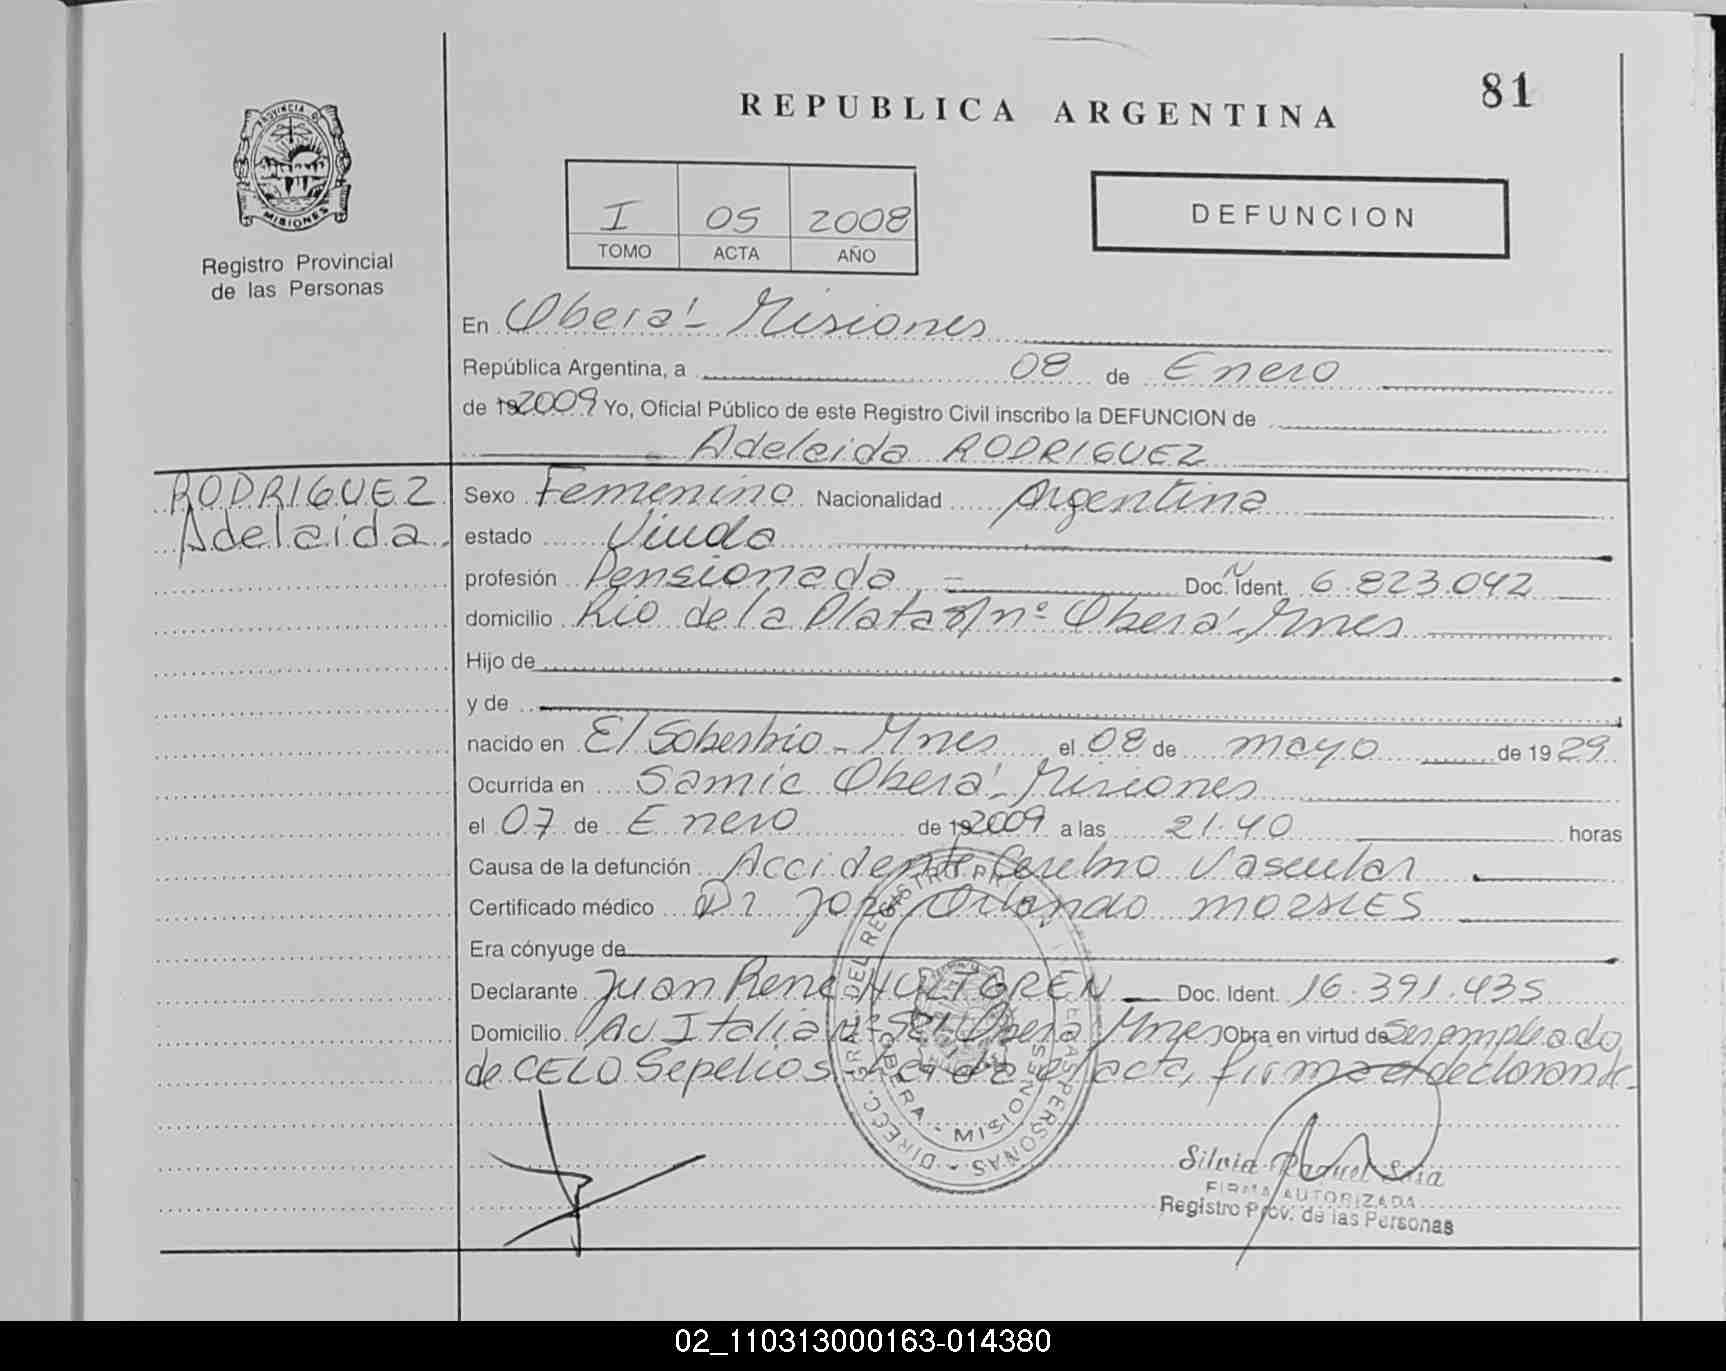 81
REPUBLICA ARGENTINA
PROVINCIA DE
MISIONES
Registro Provincial
de las Personas
I 05 2008
TOMO ACTA AÑO
DEFUNCION
En Oberá - Misiones
República Argentina, a 08 de Enero
de 19 2009 Yo, Oficial Público de este Registro Civil inscribo la DEFUNCION de
Adelaida RODRIGUEZ
RODRIGUEZ
Adelaida
Sexo Femenino Nacionalidad Argentina
estado Viuda
profesión Pensionada Doc. Ident. Nº 6.823.042
domicilio Rio de la Plata s/nº Oberá - Mnes
Hijo de
y de
nacido en El Soberbio - Mnes el 08 de mayo de 1929
Ocurrida en Samic Oberá - Misiones
el 07 de Enero de 19 2009 a las 21.40 horas
Causa de la defunción Accidente Cerebro Vascular
Certificado médico Dr. Jose Orlando MORALES
Era cónyuge de
Declarante Juan Rene HULTGREN Doc. Ident. 16.391.435
Domicilio Av Italia Oberá Mnes Obra en virtud de Ser empleado
de CELO Sepelios acta, firma el declarante
DIRECC. GRAL. DEL REGISTRO PROV. DE LAS PERSONAS
OBERA - MISIONES
Silvia Raquel
FIRMA AUTORIZADA
Registro Prov. de las Personas
02_110313000163-014380